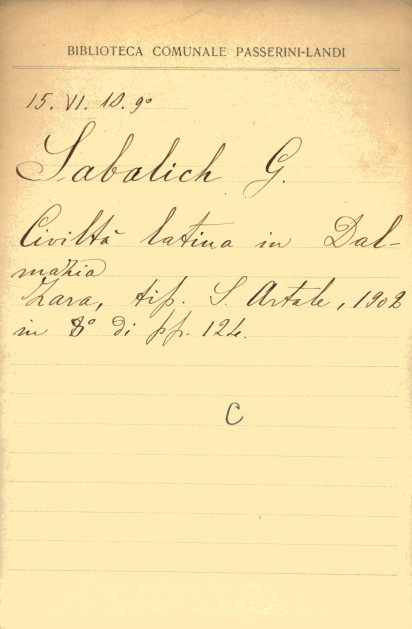 BIBLIOTECA COMUNALE PASSERINI-LANDI
15. VI. 10. 9º
Sabalich G.
Civiltà latina in Dal-
mazia
Zara, tip. S. Artale, 1902
in 8º di pp. 124.
C